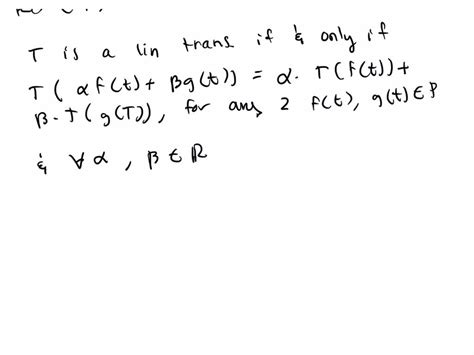 T is a lin trans if & only if
T( αf(t) + βg(t)) = α. T(f(t)) +
β. T(g(T)), for any 2 f(t), g(t) ∈ P
& ∀ α , β ∈ ℝ